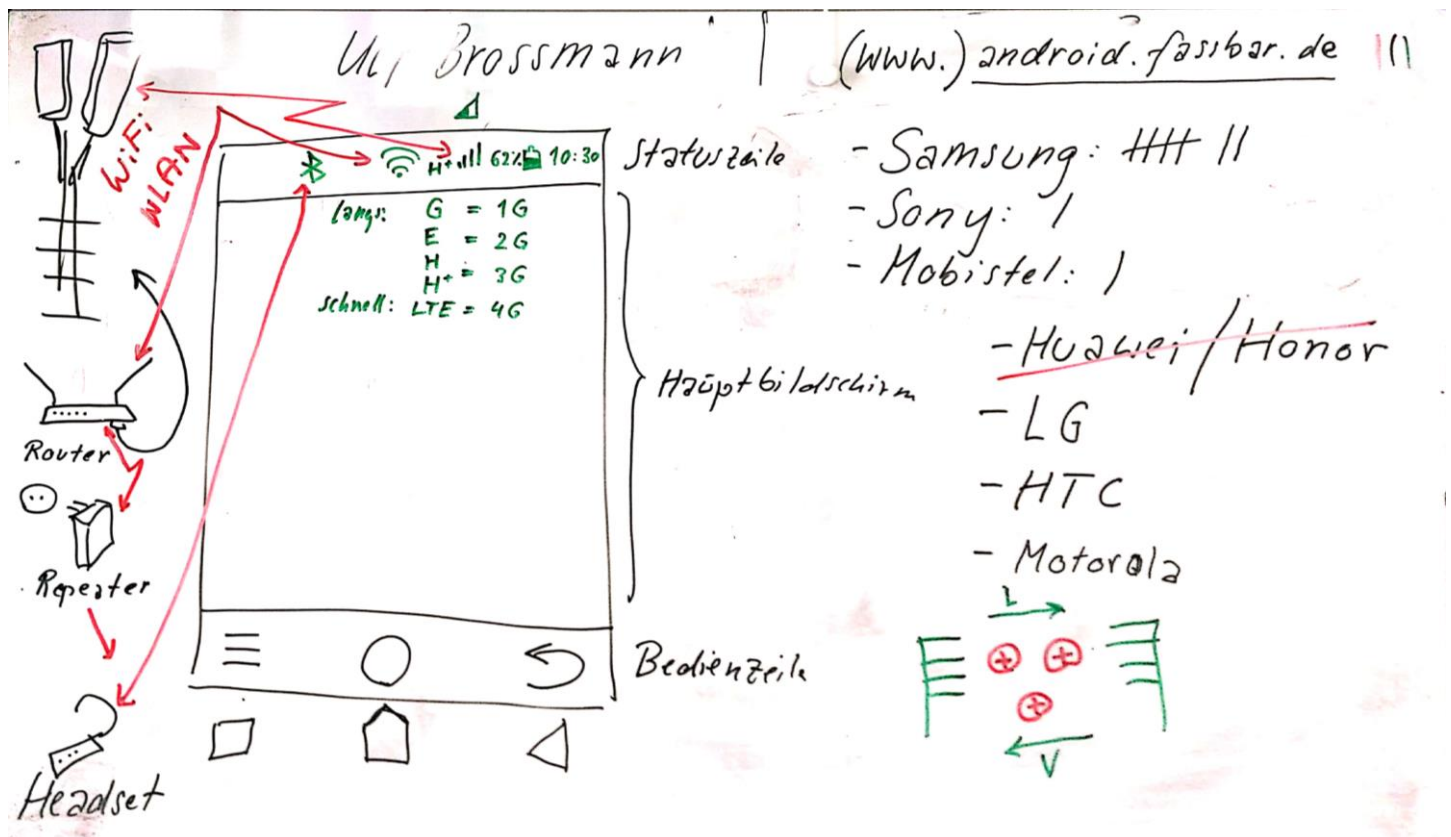 Brossmann | (www.) android.fassbar.de
WiFi
WLAN
H+ 62% 10:30
Statuszeile
langs: G = 1G
E = 2G
H
H+ = 3G
schnell: LTE = 4G
Hauptbildschirm
Bedienzeile
Router
Repeater
Headset
- Samsung: |||| ||
- Sony: |
- Mobistel: |
- Huawei/Honor
- LG
- HTC
- Motorola
L
V